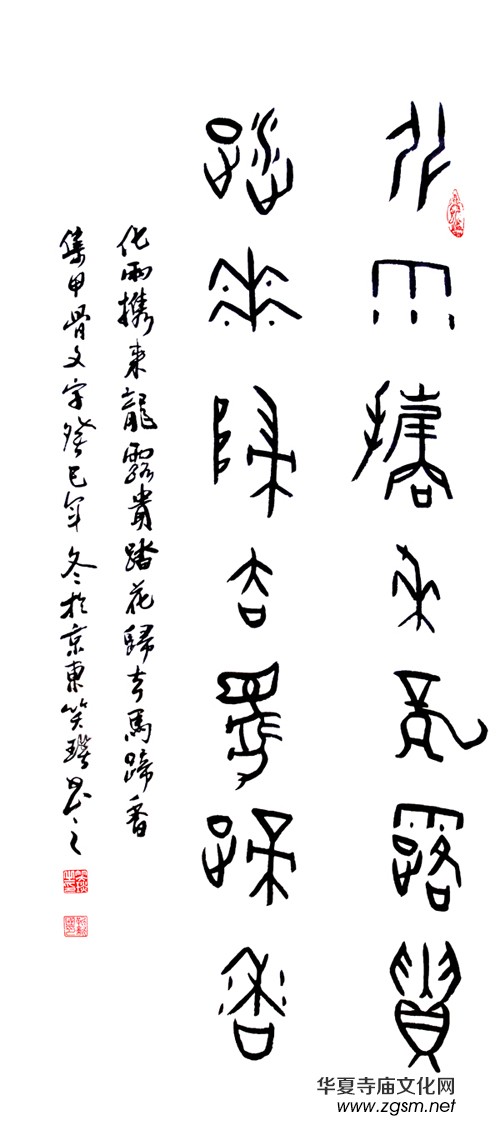 化雨攜來龍露貴
踏花歸去馬蹄香
化雨攜來龍露貴踏花歸去馬蹄香
集甲骨文字癸巳年冬於京東笑
华夏寺庙文化网
www.zgsm.net